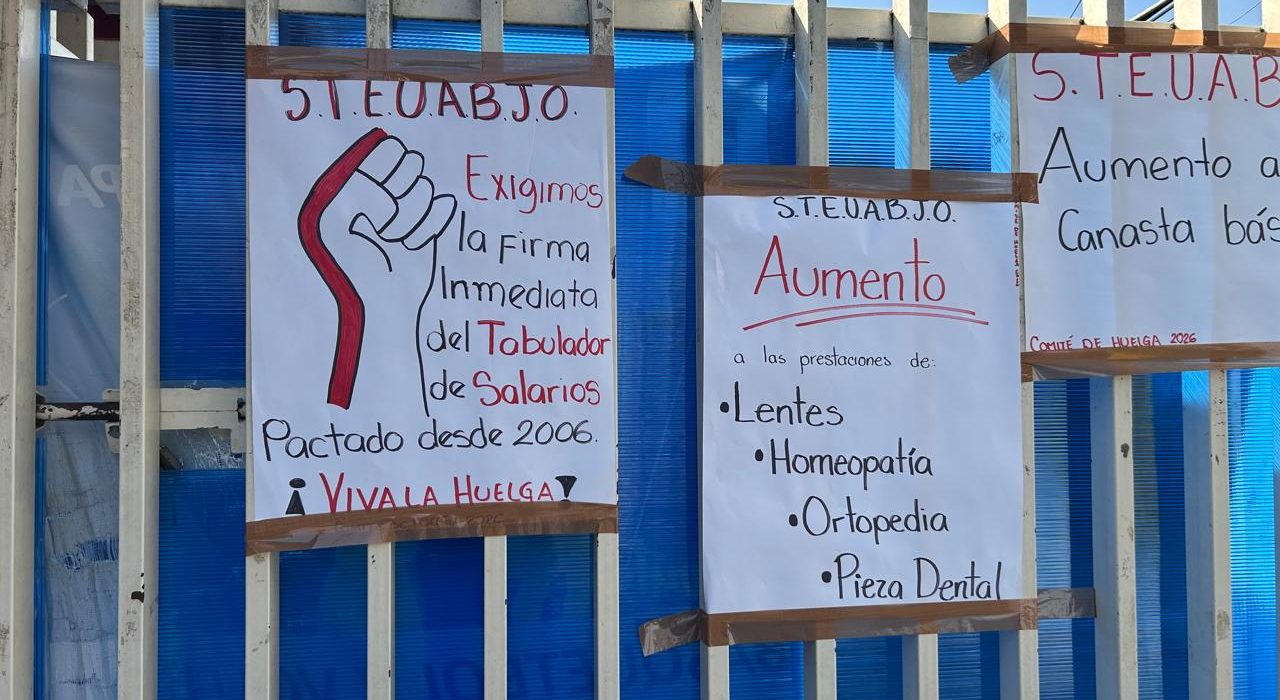 S.T.E.U.A.B.J.O.
Exigimos
la Firma
Inmediata
del Tabulador
de Salarios
Pactado desde 2006.
¡VIVA LA HUELGA!
S.T.E.U.A.B.J.O.
Aumento
a las prestaciones de:
•Lentes
•Homeopatía
•Ortopedia
•Pieza Dental
S.T.E.U.A.B
Aumento a
Canasta bás
COMITÉ DE HUELGA 2026